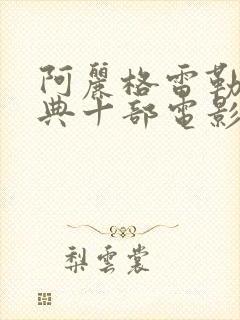 阿麗格雷勒
典十部電影
梨雲裳